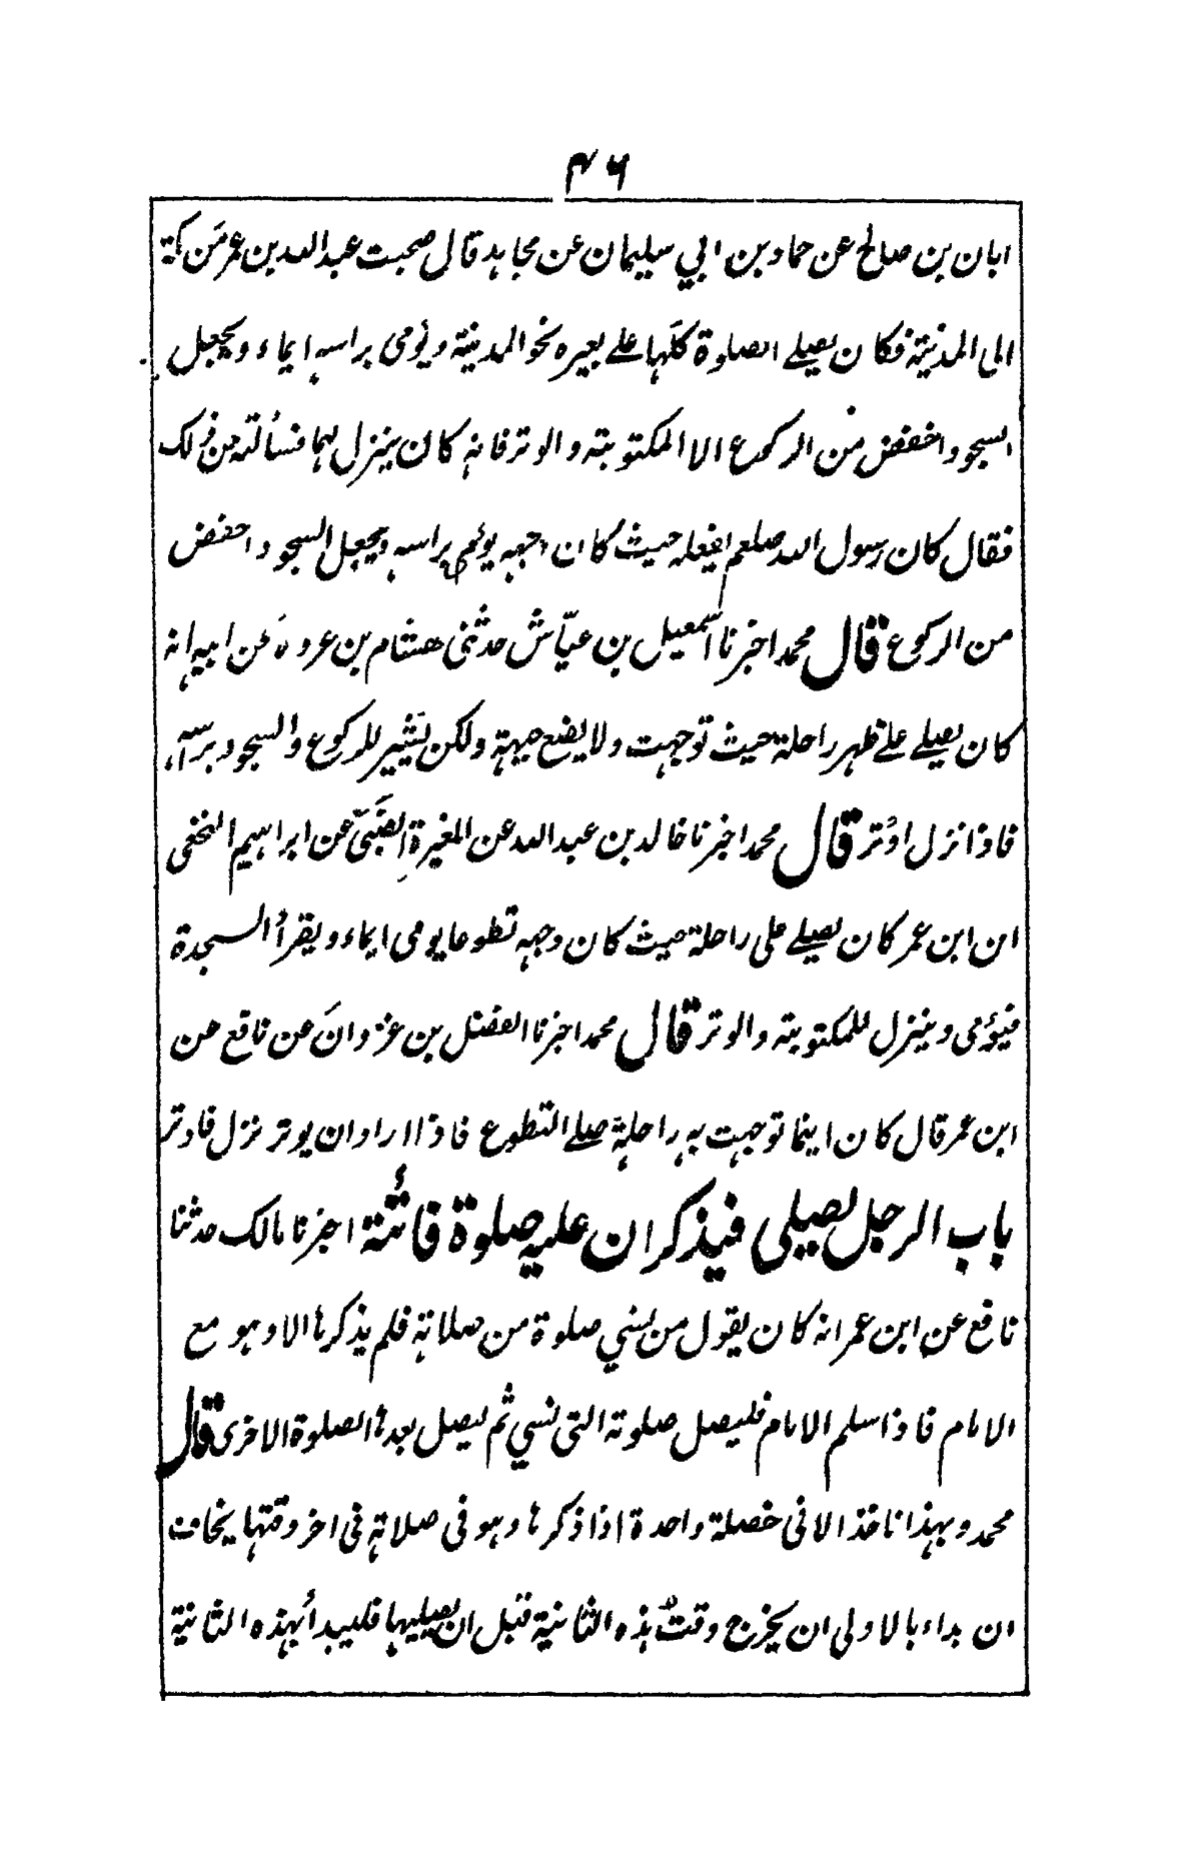 ۴۶
ابان بن صالح عن حماد بن ابي سليمان عن مجاهد قال صحبت عبد الله بن عمر من مكة
الى المدينة فكان يصلے الصلوة كلها علے بعيره نحو المدينة ويؤمى براسه ايماء ويجعل
السجود اخفض من الركوع الا المكتوبة والوتر فانه كان ينزل لهما فسألته عن ذلك
فقال كان رسول الله صلعم يفعله حيث كان وجهه يوئمى براسه ويجعل السجود اخفض
من الركوع قال محمد اخبرنا اسمعيل بن عيّاش حدثنى هشام بن عروة عن ابيه انه
كان يصلے علے ظهر راحلة حيث توجهت ولا يضع جبهة ولكن يشير للركوع والسجود برأسه
فاذا نزل اوتر قال محمد اخبرنا خالد بن عبد الله عن المغيرة الضبّى عن ابراهيم النخعى
ان ابن عمر كان يصلے على راحلة حيث كان وجهه تطوعا يومى ايماء ويقرأ السجدة
فيؤمى وينزل للمكتوبة والوتر قال محمد اخبرنا الفضل بن غزوان عن نافع عن
ابن عمر قال كان اينما توجهت به راحلة صلے التطوع فاذا اراد ان يوتر نزل فاوتر
باب الرجل يصلى فيذكر ان عليه صلوة فائتة اخبرنا مالك حدثنا
نافع عن ابن عمر انه كان يقول من نسي صلوة من صلاته فلم يذكرها الا وهو مع
الامام فاذا سلم الامام فليصل صلوته التى نسي ثم ليصل بعدها الصلوة الاخرى قال
محمد وبهذا ناخذ الا فى خصلة واحدة اذا ذكرها وهو فى صلاته فى اخر وقتها يخاف
ان بداء بالاولى ان يخرج وقت هذه الثانية قبل ان يصليها فليبدأ بهذه الثانية